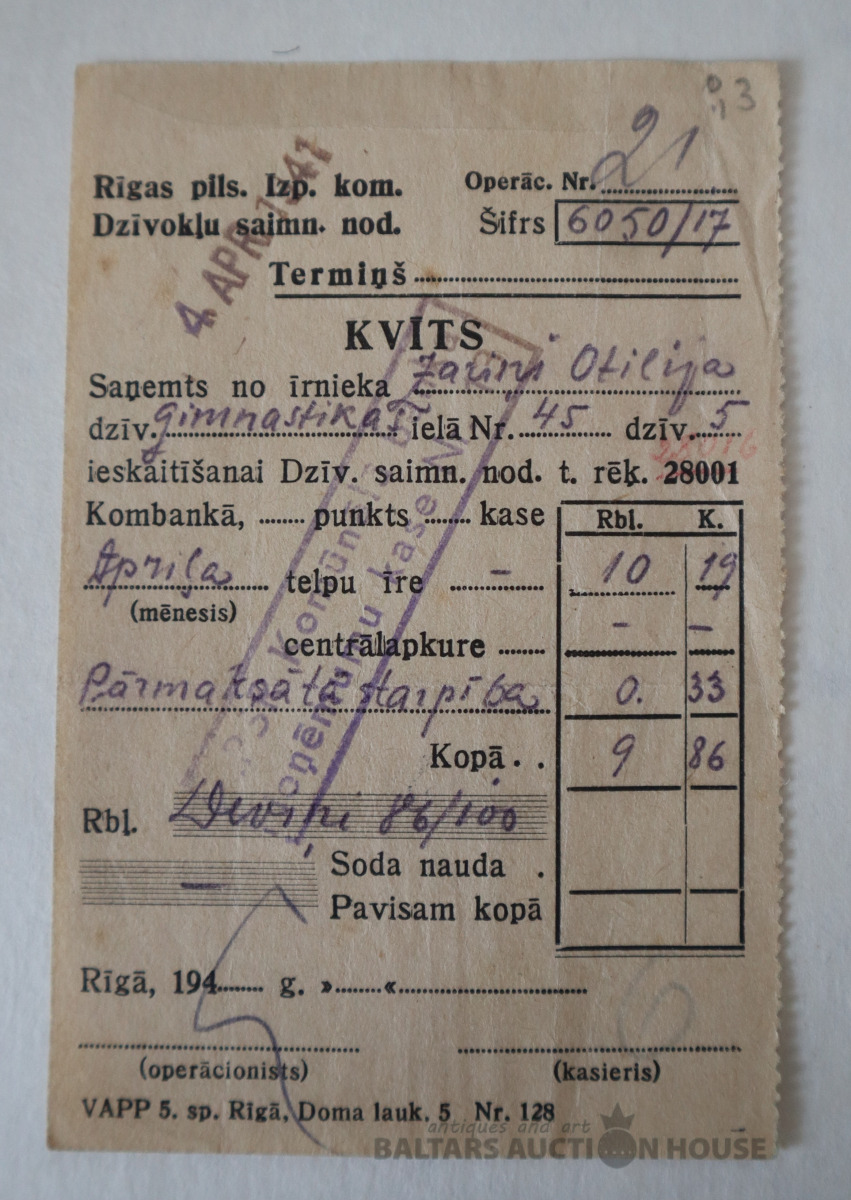 03
4. APR. 1941
Rīgas pils. Izp. kom. Operāc. Nr. 21
Dzīvokļu saimn. nod. Šifrs 6050/17
Termiņš
KVĪTS
Saņemts no īrnieka Zariņi Otilija
dzīv. Ģimnastikas ielā Nr. 45 dzīv. 5
ieskaitīšanai Dzīv. saimn. nod. t. rēķ. 28001
Kombankā, punkts kase Rbl. K.
Apriļa telpu īre - 10 19
(mēnesis)
centrālapkure - -
Pārmaksātā starpība 0. 33
Kopā . . 9 86
Rbl. Deviņi 86/100
Soda nauda .
-
Pavisam kopā
Rīgā, 194 g. » «
(operācionists) (kasieris)
VAPP 5. sp. Rīgā, Doma lauk. 5 Nr. 128
antiques and art
BALTARS AUCTION HOUSE